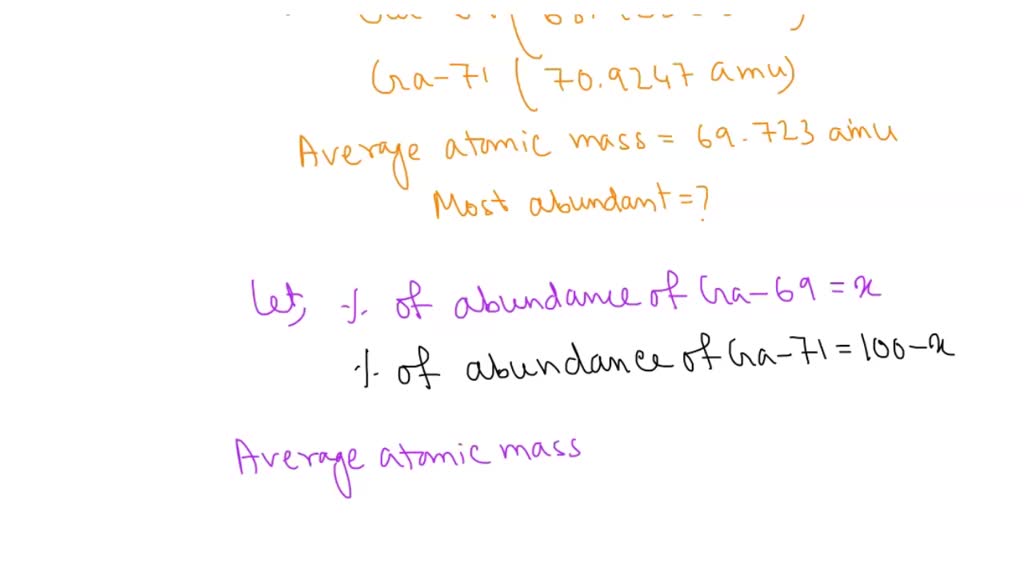 Ga-71 (70.9247 amu)
Average atomic mass = 69.723 amu
Most abundant = ?
Let, % of abundance of Ga-69 = x
% of abundance of Ga-71 = 100-x
Average atomic mass